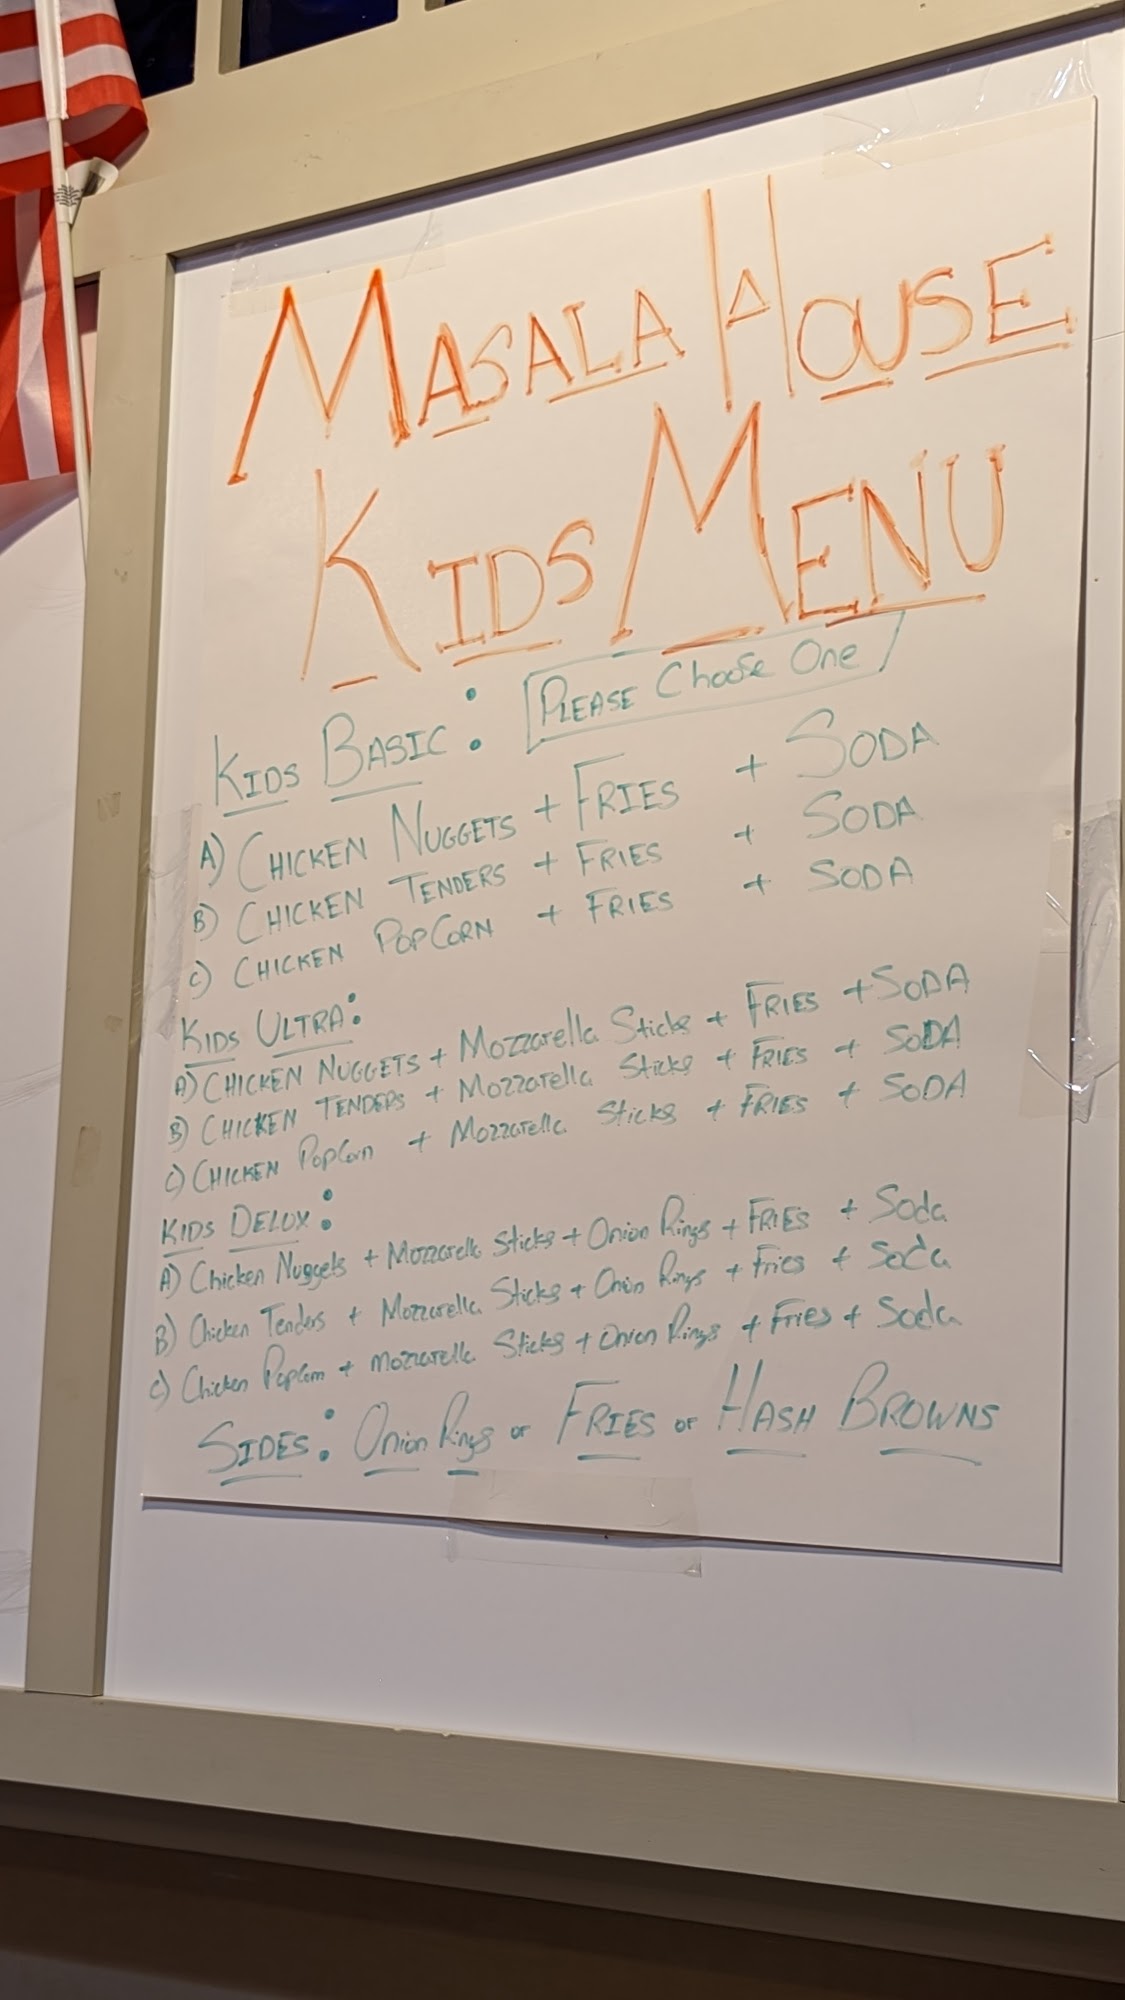 MASALA HOUSE
KIDS MENU
KIDS BASIC: PLEASE Choose One
A) CHICKEN NUGGETS + FRIES + SODA
B) CHICKEN TENDERS + FRIES + SODA
C) CHICKEN POPCORN + FRIES + SODA
KIDS ULTRA:
A) CHICKEN NUGGETS + Mozzarella Sticks + FRIES + SODA
B) CHICKEN TENDERS + Mozzarella Sticks + FRIES + SODA
C) CHICKEN PopCorn + Mozzarella Sticks + FRIES + SODA
KIDS DELUX:
A) Chicken Nuggets + Mozzarella Sticks + Onion Rings + FRIES + Soda
B) Chicken Tenders + Mozzarella Sticks + Onion Rings + Fries + Soda
C) Chicken PopCorn + Mozzarella Sticks + Onion Rings + Fries + Soda
SIDES: Onion Rings or FRIES or HASH BROWNS